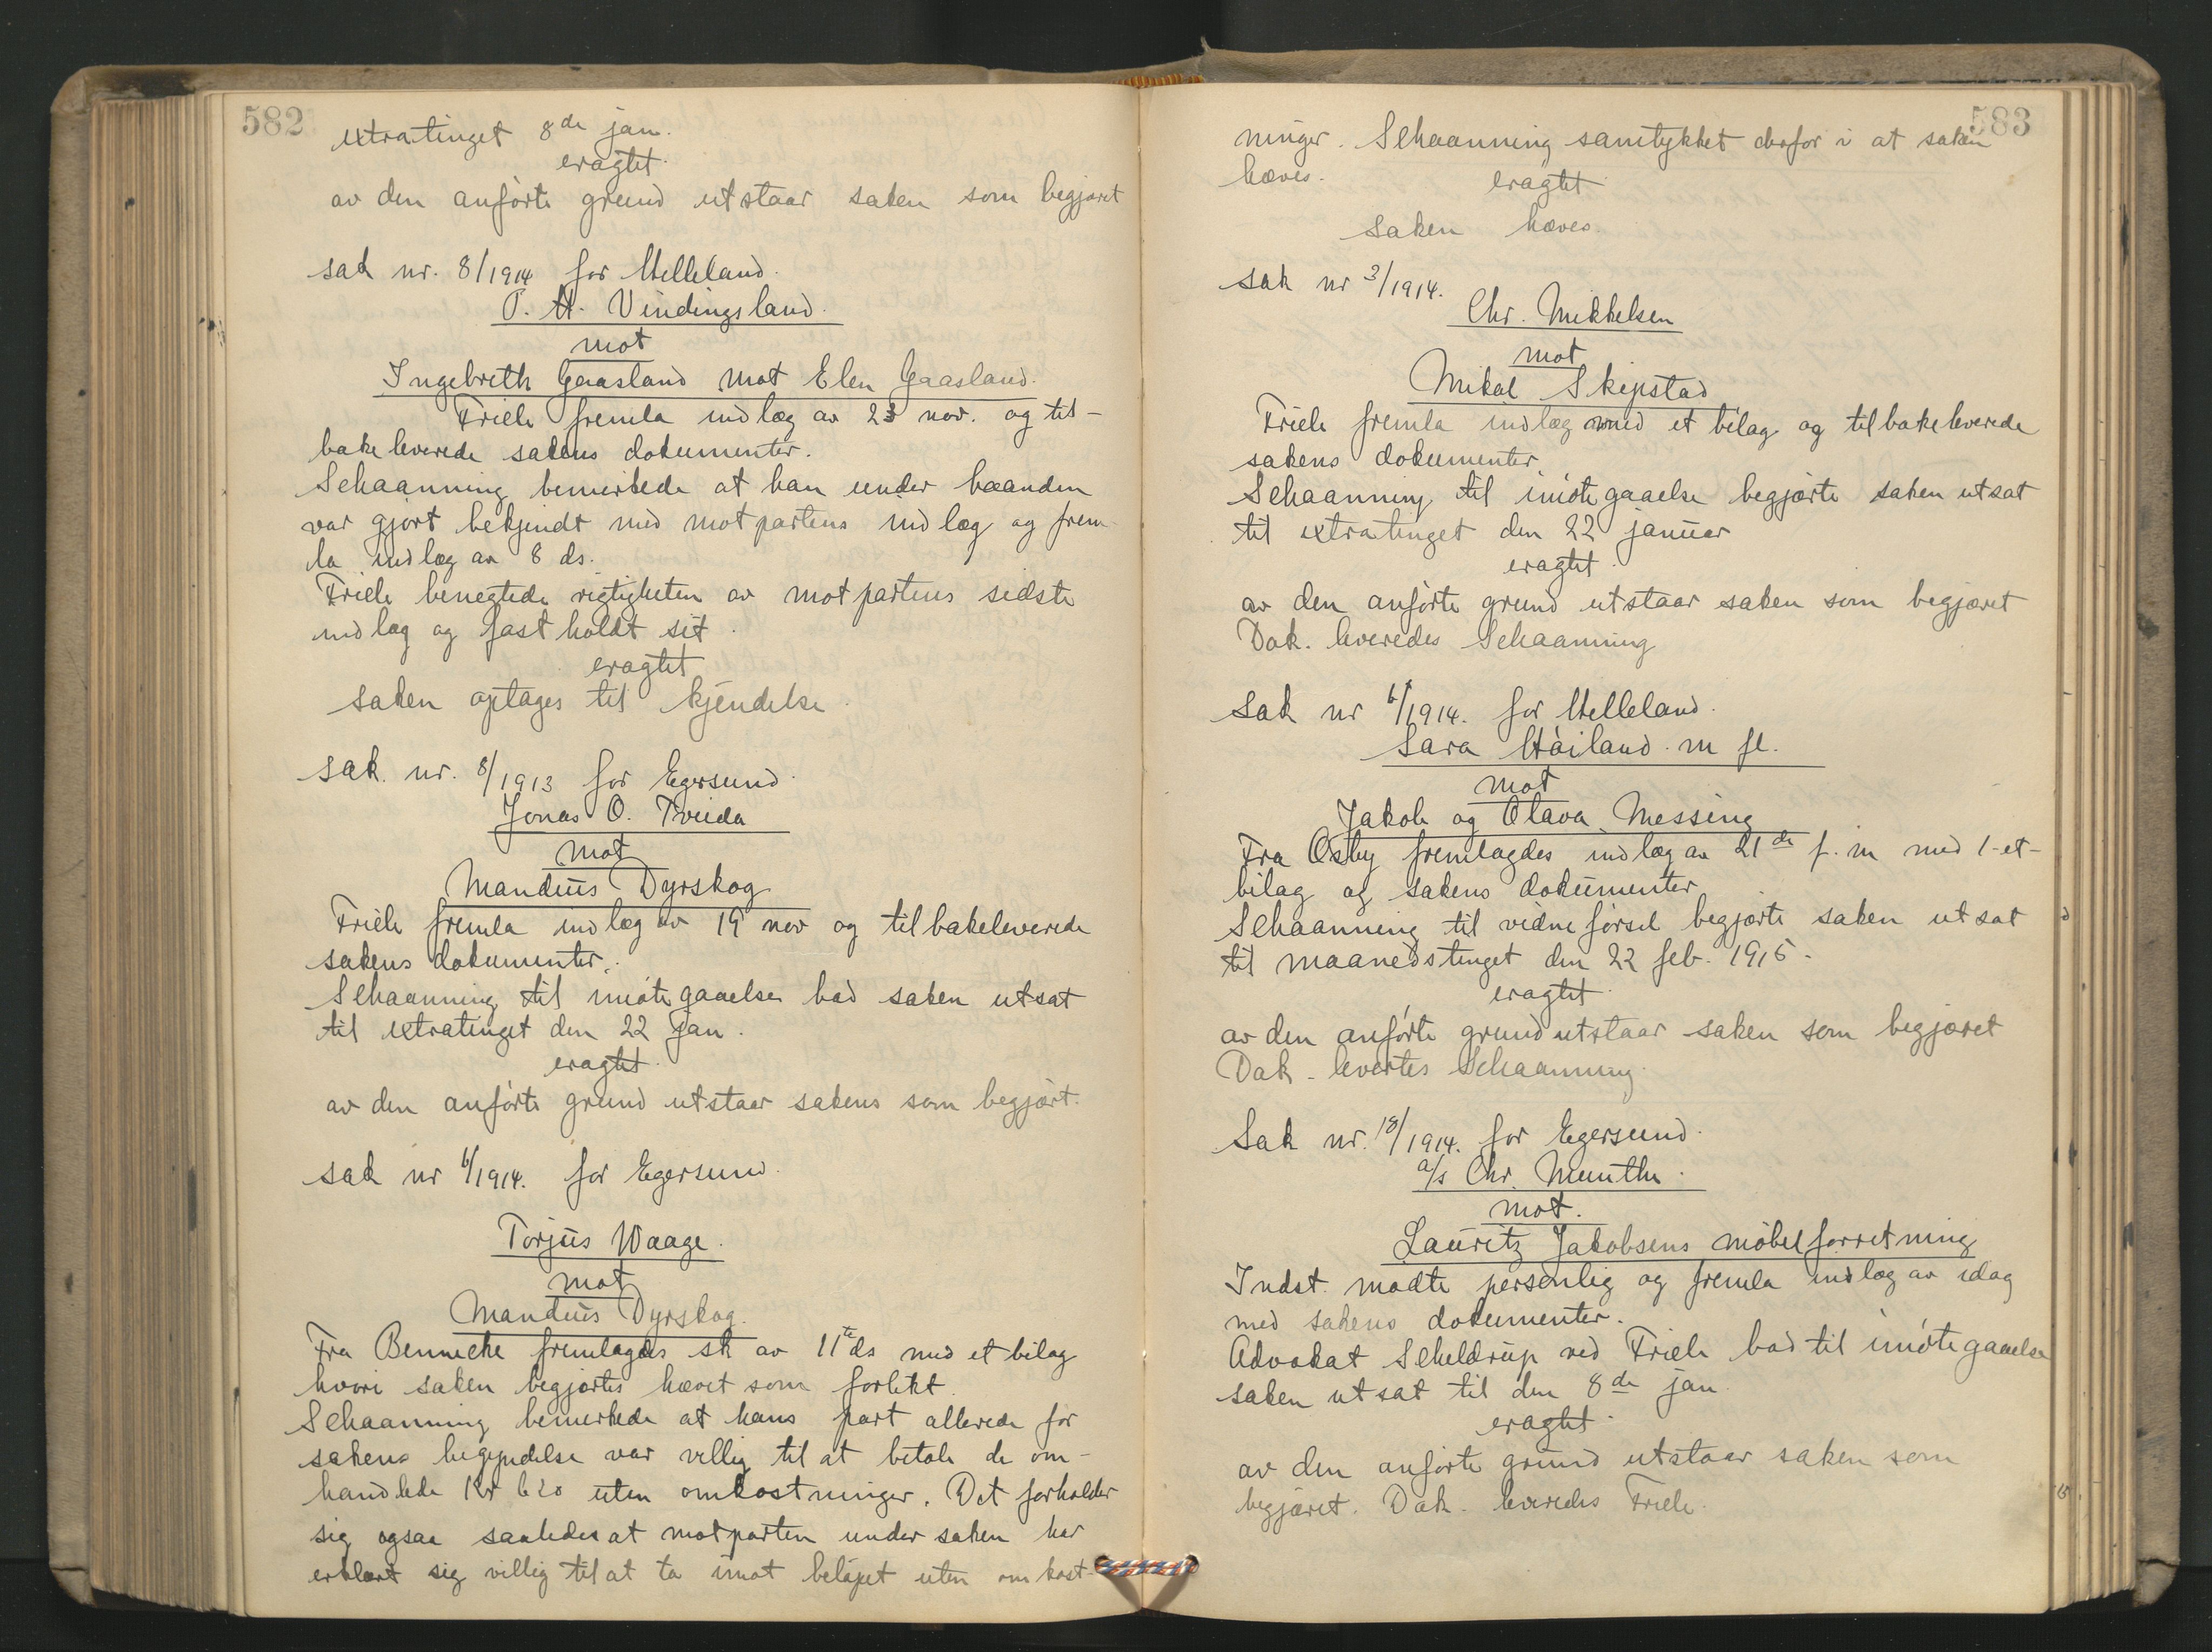 582
extratinget 8de jan.
eragtet.
av den anførte grund utstaar saken som begjæret
sak nr. 8/1914 for Helleland.
P. H. Vindingsland.
mot
Ingebreth Gaasland mot Elen Gaasland.
Friele fremla indlæg av 23 nov. og til-
bakeleverede sakens dokumenter.
Schaanning bemerkede at han under haanden
var gjort bekjendt med motpartens indlæg og frem-
la indlæg av 8 ds.
Friele benegtede rigtigheten av motpartens sidste
indlæg og fastholdt sit.
eragtet
saken optages til kjendelse.
sak. nr. 8/1913 for Egersund.
Jonas O. Tveida
mot
Mandius Dyrskog
Friele fremla indlæg av 19 nov og tilbakeleverede
sakens dokumenter.
Schaanning til imøtegaaelse bad saken utsat
til extratinget den 22 Jan.
eragtet.
av den anførte grund utstaar sakens som begjært.
sak nr 6/1914. for Egersund.
Torjus Waage.
mot
Mandius Dyrskog.
Fra Bennecke fremlagdes sk av 11te ds med et bilag
hvori saken begjærtes hævet som forlikt.
Schaanning bemerkede at hans part allerede før
sakens begyndelse var villig til at betale de om-
handlede Kr 620 uten omkostninger. Det forholder
sig ogsaa saaledes at motparten under saken har
erklært sig villig til at ta imot beløpet uten omkost-
583
ninger. Schaanning samtykket derfor i at saken
hæves. eragtet
saken hæves.
sak nr 3/1914.
Chr. Mikkelsen
mot
Mikal Skipstad
Friele fremla indlæg med et bilag og tilbakeleverede
sakens dokumenter.
Schaanning til imøtegaaelse begjærte saken utsat
til extratinget den 22 januar
eragtet.
av den anførte grund utstaar saken som begjæret
Dok. leveredes Schaanning
sak nr 6/1914. for Helleland.
Sara Høiland m fl.
mot
Jakob og Olava Messing
Fra Osby fremlagdes indlæg av 21de f. m med 1-et-
bilag og sakens dokumenter
Schaanning til vidneførsel begjærte saken utsat
til maanedstinget den 22 feb. 1915.
eragtet.
av den anførte grund utstaar saken som begjæret
Dok. levertes Schaanning.
Sak nr. 18/1914. for Egersund.
a/s Chr. Munthe.
mot.
Lauritz Jakobsens møbelforretning
Indst. mødte personlig og fremla indlæg av idag
med sakens dokumenter.
Advokat Scheldrup ved Friele bad til imøtegaaelse
saken utsat til den 8de jan.
eragtet.
av den anførte grund utstaar saken som
begjæret. Dok. leveredes Friele.